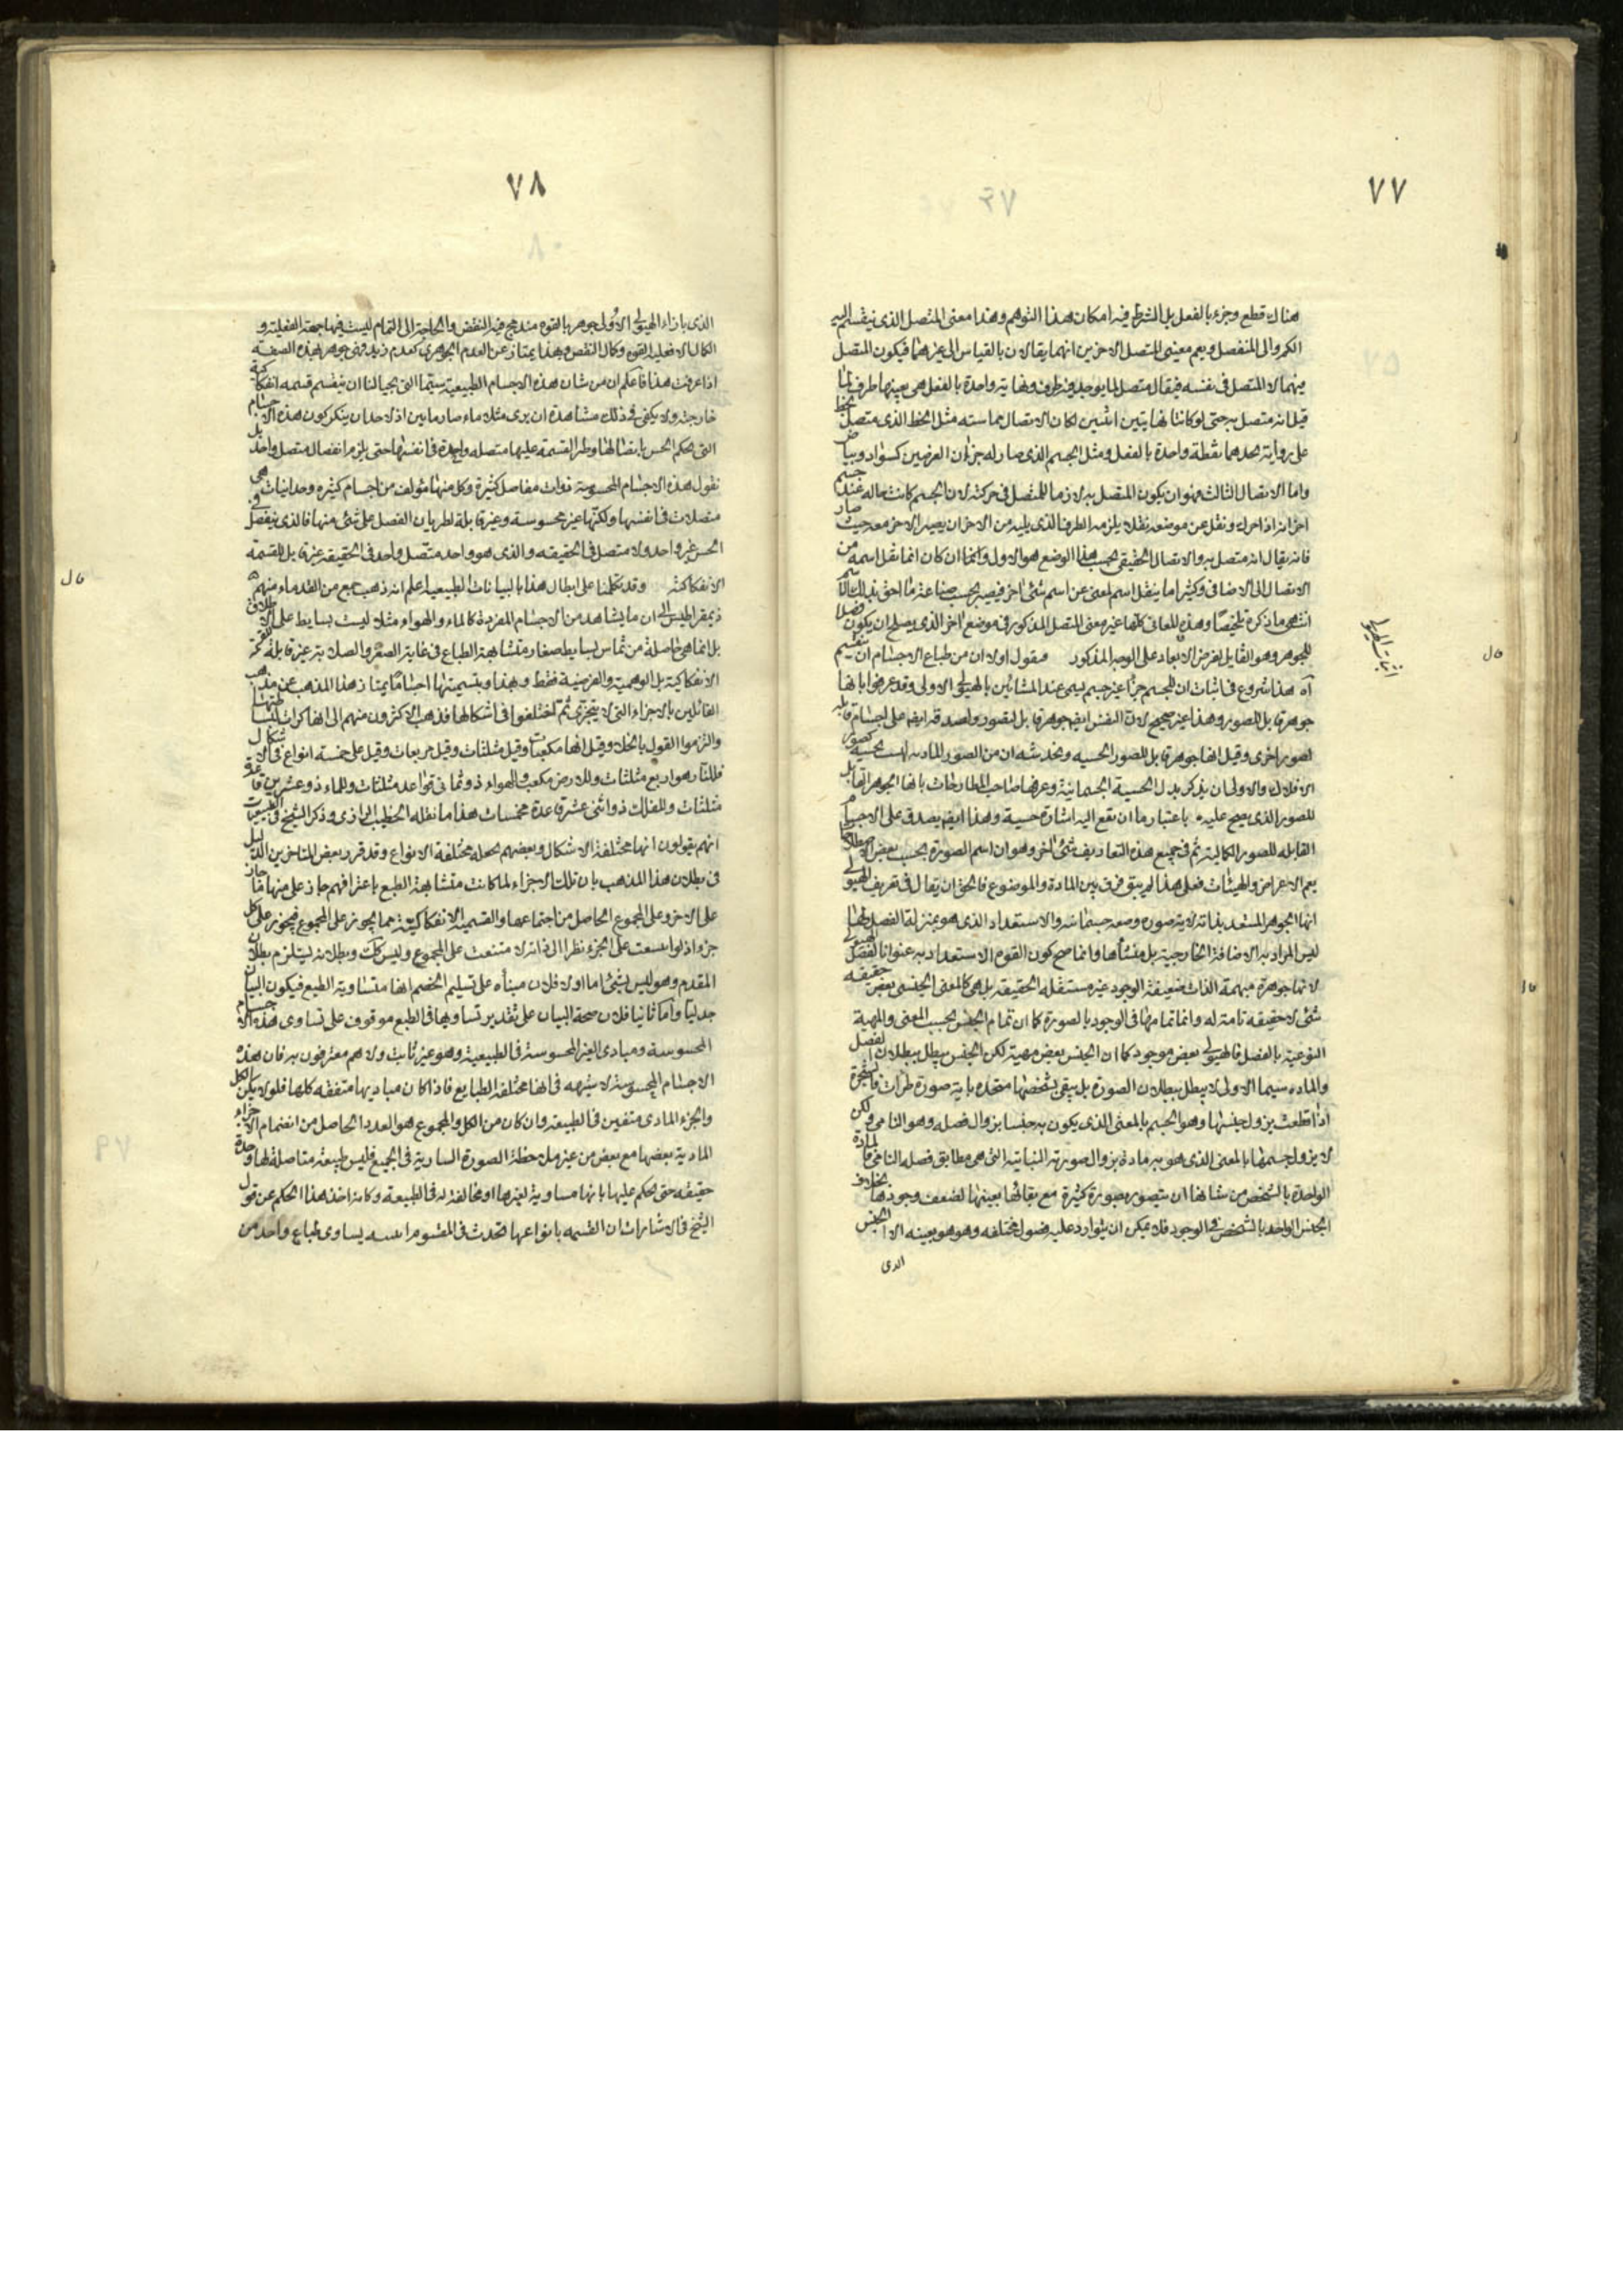 ٧٧
هناك قطع وجزء بالفعل بل الشرط فيه امكان هذا التوهم وهذا معنى المتصل الذى ينقسم اليه
الكم والى المنفصل ويعم معنيى المتصل الاخرين انهما يقالان بالقياس الى غيرهما فيكون المتصل
منهما لا المتصل فى نفسه فيقال متصل لما يوجد فيه طرف ونهاية واحدة بالفعل هى بعينها طرف لما
قيل انه متصل به حتى لو كانتا نهايتين اثنتين لكان الاتصال مماسته مثل الخط الذى متصل بخط
على زواية يحدهما نقطة واحدة بالفعل ومثل الجسم الذى صار له جزان لعرضين كسواد وبياض
واما الاتصال الثالث فهو ان يكون المتصل به لازما للمتصل فى حركته لان الجسم كانت حاله عند جسم
اخر انه اذا حرك ونقل عن موضعه نقلا يلزمه الطرف الذى يليه من الاخر ان يصير الاخر معه حيث صار
فانه يقال انه متصل به والاتصال الحقيقى بحسب هذا الوضع هو الاول وانما ان كان انما نقل اسمه من
الاتصال الى الاضافى وكثيرا ما ينقل اسم لمعنى عن اسم شئ اخر فيصير بحسب صناعة ما احق بذلك الاسم
انتهى ما ذكره تلخيصا وهذه المعانى كلها غير معنى المتصل المذكور فى موضع اخر الذى يصلح ان يكون فصلا
للجوهر وهو القابل لفرض الابعاد على الوجه المذكور فنقول اولا ان من طباع الاجسام ان ينقسم
آه هذا شروع فى اثبات ان للجسم جزءا غير جسم يسمى عند المشائين بالهيولى الاولى وقد عرفوا بانها
جوهر قابل للصور وهذا غير صحيح لان النفس ايضا جوهر قابل لصور ولصدقه ايضا على اجسام قابلة
لصور اخرى وقيل انها جوهر قابل للصور الحسيه ويخدشه ان من الصور المادية ليست بحسية كصور
الافلاك والاولى ان يذكر بدل الحسية الجسمانية وعرفها صاحب المطارحات بانها الجوهر القابل
للصور الذى يصح عليه باعتبار ما ان تقع اليه اشارة حسية وهذا ايضا يصدق على الاجسام
القابله للصور الكمالية ثم فى جميع هذه التعاريف شئ اخر وهو ان اسم الصورة بحسب بعض الاصطلاحات
يعم الاعراض والهيئات فعلى هذا لم يبق فرق بين المادة والموضوع فالحق ان يقال فى تعريف الهيولى
انها الجوهر المستعد بذاته لاية صوره وصفه جسمانيه والاستعداد الذى هو بمنزلة الفصل لها
ليس المراد به الاضافة الخارجية بل منشأها وانما صح كون القوم الاستعداد به عنوانا لفصل الهيولى
لانها جوهرة مبهمة الذات ضعيفة الوجود غير مستقله الحقيقة بل هى كالمعنى الجنسى بعض حقيقه
شئ لا حقيقه تامة له وانما تمامها فى الوجود بالصورة كما ان تمام الجنس بحسب المعنى والمهية
النوعية بالفصل فالهيولى بعض موجود كما ان الجنس بعض مهية لكن الجنس يبطل ببطلان الفصل
والماده سيما الاولى لا يبطل ببطلان الصورة بل يبقى بشخصها متحده باية صورة طرات فالشجرة
اذا قطعت يزول جنسها وهو الجسم بالمعنى الذى يكون به جنسا بزوال فصله وهو النامى ولكن
لا يزول جسمها بالمعنى الذى هو به مادة بزوال صورته النباتية التى هى مطابق فصله النامى فالمادة
الواحدة بالشخص من شانها ان يتصور بصورة كثيرة مع بقائها بعينها لضعف وجودها بخلاف
الجنس الواحد بالشخص فى الوجود فلا يمكن ان يتوارد عليه فصول مختلفه وهو هو بعينه لان الجنس
الذى
اثبات الهيولى
٧٨
الذى بازاء الهيولى الاولى جوهر بالقوه مندمج فيه النقص والحاجة الى التمام ليست فيها جهة الفعلية و
الكمال الا فعلية القوه وكمال النقص وبهذا يمتاز عن العدم الجوهرى كعدم زيد فهى جوهر بهذه الصفه
اذا عرفت هذا فاعلم ان من شان هذه الاجسام الطبيعية سيما التى بحيالنا ان ينقسم قسمه انفكاكية
خارجية ولا يكفى فى ذلك مشاهدة ان يرى مثلا ماء صار ماءين اذ لاحد ان ينكر كون هذه الاجسام
التى يحكم الحس باتصالها وطرا القسمة عليها متصله واحدة فى نفسها حتى يلزم انفصال متصل واحد بل
نقول هذه الاجسام المحسوسة ذوات مفاصل كثيرة وكل منها مؤلف من اجسام كثيره وحدانيات هى
متصلات فى انفسها ولكنها غير محسوسة وغير قابلة لطريان الفصل على شئ منها فالذى ينفصل فى
الحس غير واحد ولا متصل فى الحقيقه والذى هو واحد متصل واحد فى الحقيقة غير قابل للقسمة
الانفكاكية وقد تكلمنا على ابطال هذا بالبيانات الطبيعية اعلم انه ذهب جمع من القدماء منهم
ذيمقراطيس الى ان ما يشاهد من الاجسام المفردة كالماء والهواء مثلا ليست بسايط على الاطلاق
بل انما هى حاصلة من تماس بسايط صغار متشابهة الطباع فى غاية الصغر والصلابة غير قابلة للقسمة
الانفكاكية بل الوهمية والعرضية فقط وبهذا وبتسميتها اجساما يمتاز هذا المذهب عن مذهب
القائلين بالاجزاء التى لا يتجزى ثم اختلفوا فى اشكالها فذهب الاكثرون منهم الى انها كرات لبساطتها
والتزموا القول بالخلاء وقيل انها مكعبات وقيل مثلثات وقيل مربعات وقيل على خمسه انواع فى الاشكال
فللنار هو اربع مثلثات وللارض مكعب والهواء ذو ثمانى قواعد مثلثات وللماء ذو عشرين قاعدة
مثلثات وللفلك ذو اثنى عشر قاعدة مخمسات هذا ما نقله الخطيب الرازى وذكر الشيخ فى الطبيعيات
انهم يقولون انها مختلفة الاشكال وبعضهم يجعله مختلفة الانواع وقد قرر بعض المتاخرين الدليل
فى بطلان هذا المذهب بان تلك الاجزاء لما كانت متشابهة الطبع باعترافهم جاز على كل منها ما جاز
على الاخر وعلى المجموع الحاصل من اجتماعها والقسمة الانفكاكية مما يجوز على المجموع فيجوز على كل
جزء اذ لو امتنعت على الجزء نظرا الى ذاته لامتنعت على المجموع وليس كذلك وبطلانه يستلزم بطلان
المقدم وهو ليس بشئ اما اولا فلان مبناه على تسليم الخصم انها متساوية الطبع فيكون البيان
جدليا واما ثانيا فلان صحة البيان على تقدير تساويها فى الطبع موقوف على تساوى هذه الاجسام
المحسوسة ومبادى الغير المحسوسة فى الطبيعية وهو غير ثابت ولا هم معترفون به فان هذه
الاجسام المحسوسة لا شبهه فى انها مختلفة الطبايع فاذا كان مباديها متفقه كلها فلو لا يكون الكل
والجزء المادى متفقين فى الطبيعة وان كان من الكل والمجموع هو العدد الحاصل من انضمام الاجزاء
المادية بعضها مع بعض من غير ملاحظة الصورة السارية فى الجميع فليس طبيعة متاصلة لها وحدة
حقيقه حتى يحكم عليها بانها مساوية لغيرها او مخالفة له فى الطبيعة وكانه اخذ هذا الحكم عن قول
الشيخ فى الاشارات ان القسمه بانواعها تحدث فى المقسوم اثنينيه يساوى طباع واحد من